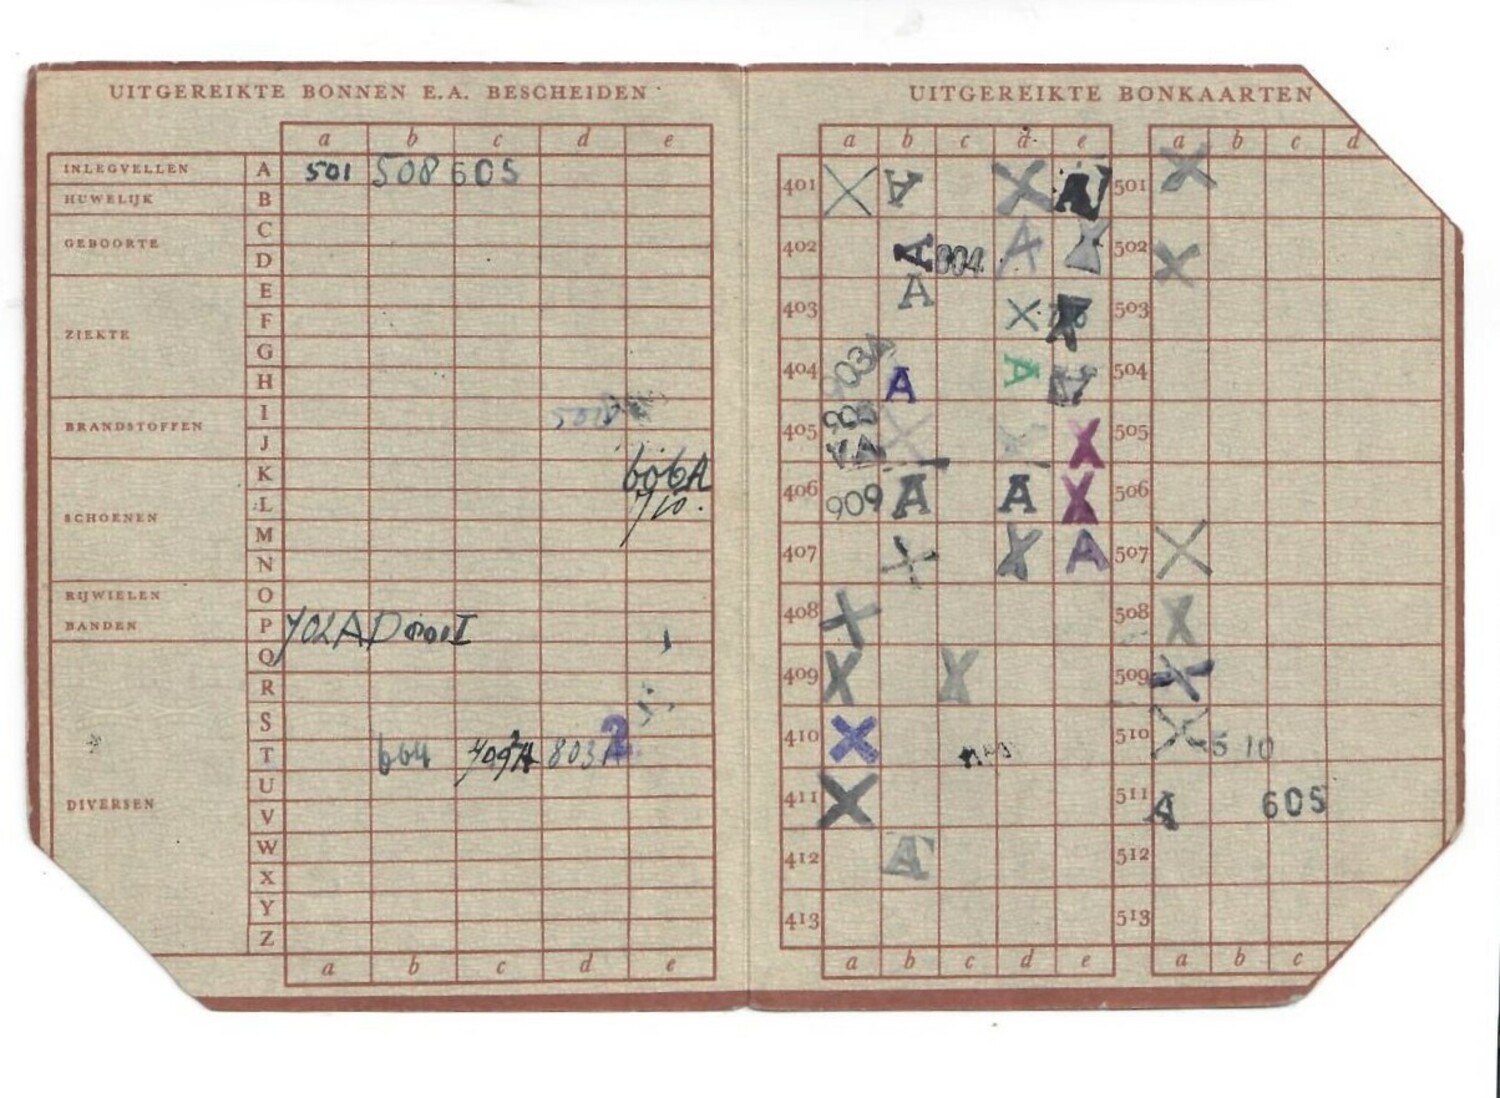 UITGEREIKTE BONNEN E.A. BESCHEIDEN
a b c d e
INLEGVELLEN A 501 508 605
HUWELIJK B
C
GEBOORTE
D
E
ZIEKTE F
G
H
I
BRANDSTOFFEN
J
K 606A
L 710.
SCHOENEN
M
N
RIJWIELEN O
BANDEN P
Q
R
S 2
T 604 709A 803A
U
DIVERSEN V
W
X
Y
Z
a b c d e
UITGEREIKTE BONKAARTEN
a b c d e a b c d
401 X A X A 501 X
402 A 804 A X 502 X
403 A X X 503
404 903A A A A 504
405 VA X X X 505
406 909 A A X 506
407 X X A 507 X
408 X 508 X
409 X X 509 X
410 X 510 X 510
411 X 511 A 605
412 A 512
413 513
a b c d e a b c